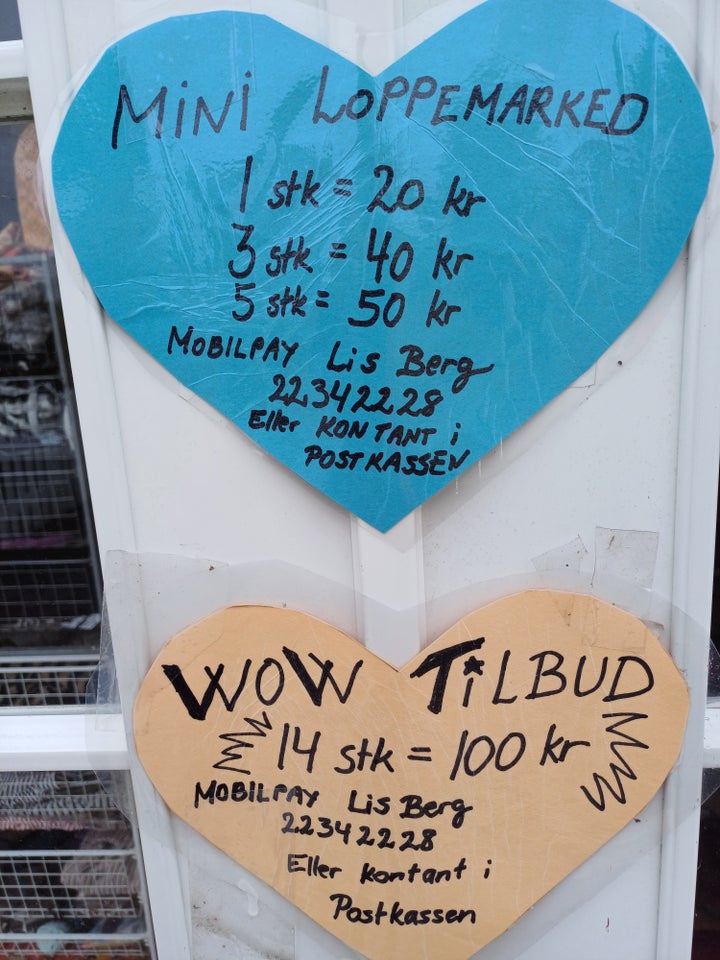 MiNi LOPPEMARKED
1 stk = 20 kr
3 stk = 40 kr
5 stk = 50 kr
MOBILPAY Lis Berg
22342228
Eller KONTANT i
POSTKASSEN
WOW TiLBUD
14 stk = 100 kr
MOBILPAY Lis Berg
22342228
Eller kontant i
Postkassen